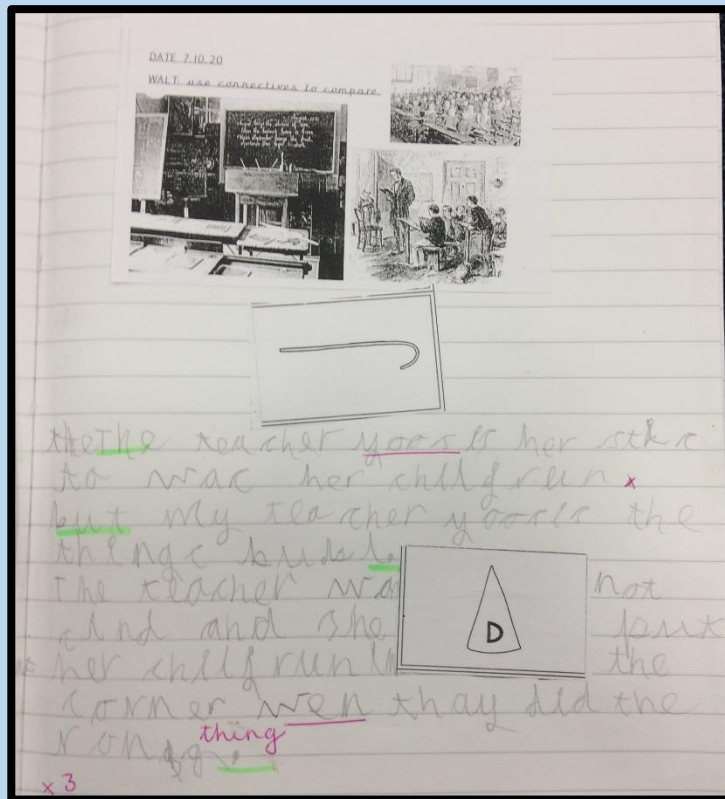 DATE 7.10.20
WALT: use connectives to compare
the The teacher yoosis her stic
to wac her childrun x
but my teacher yoosis the
thingc
The teacher wa not
cind and she put
her childrun the
corner wen thay did the
rong thing.
D
x 3